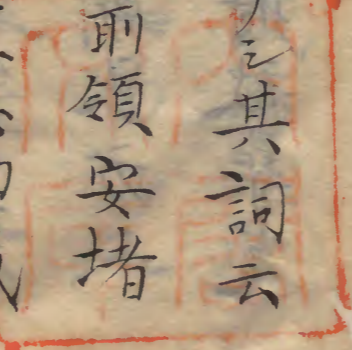 其詞云
所領安堵